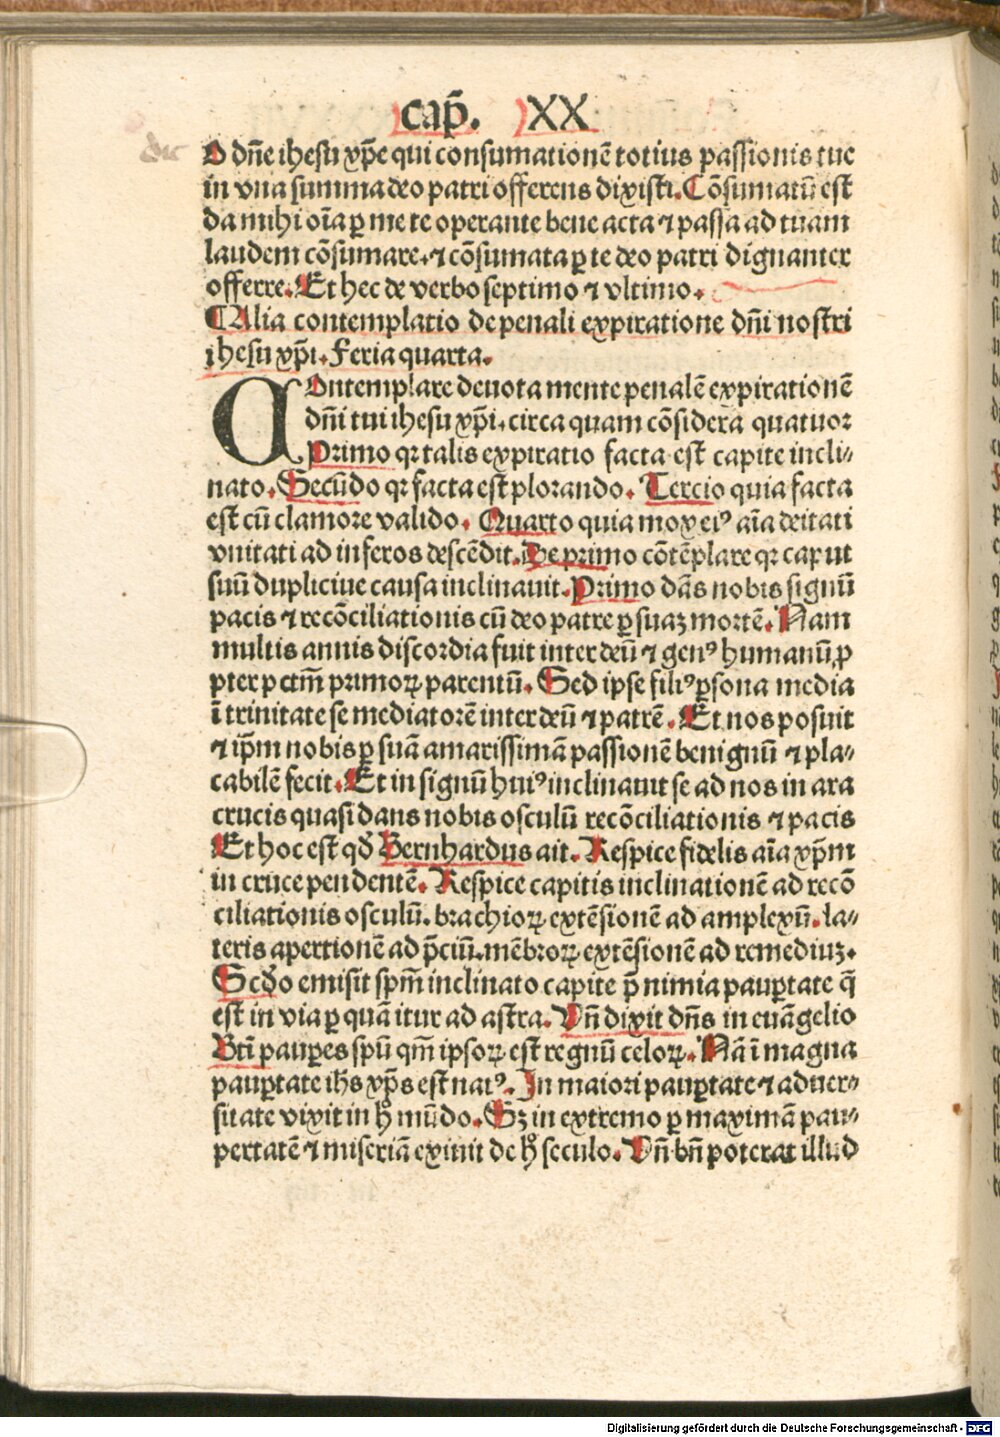 cap̄. XX
O dn̄e ihesu xp̄e qui consumationē totius passionis tue
in vna summa deo patri offerens dixisti. Cōsumatū est
da mihi oīa ꝑ me te operante bene acta ⁊ passa ad tuam
laudem cōsumare. ⁊ cōsumata ꝑ te deo patri dignanter
offerre. Et hec de verbo septimo ⁊ vltimo.
¶Alia contemplatio de penali expiratione dn̄i nostri
ihesu xp̄i. Feria quarta.
COntemplare deuota mente penalē expirationē
dn̄i tui ihesu xp̄i. circa quam cōsidera quatuor
Primo qꝛ talis expiratio facta est capite incli⸗
nato. Secūdo qꝛ facta est plorando. Tercio quia facta
est cū clamore valido. Quarto quia mox eiꝰ aīa deitati
vnitati ad inferos descēdit. De primo cōtēplare qꝛ caput
suū duplici ue causa inclinauit. Primo dās nobis signū
pacis ⁊ recōciliationis cū deo patre ꝑ suaꝫ mortē. Nam
multis annis discordia fuit inter deū ⁊ genꝰ humanū ꝓ
pter pctm̄ primoꝝ parentū. Sed ipse filiꝰ ꝑsona media
ī trinitate se mediatorē inter deū ⁊ patrē. Et nos posuit
⁊ ip̄m nobis ꝑ suā amarissimā passionē benignū ⁊ pla⸗
cabilē fecit. Et in signū huiꝰ inclinauit se ad nos in ara
crucis quasi dans nobis osculū recōciliationis ⁊ pacis
Et hoc est qđ Bernhardus ait. Respice fidelis aīa xp̄m
in cruce pendentē. Respice capitis inclinationē ad recō
ciliationis osculū. brachioꝝ extēsionē ad amplexū. la⸗
teris apertionē ad p̄ciū. mēbroꝝ extēsionē ad remediuꝫ.
Scđo emisit spm̄ inclinato capite p̄ nimia pauꝑtate q̄
est in via ꝑ quā itur ad astra. Vn̄ dixit dn̄s in euāgelio
Bti̅ pauꝑes spū qm̄ ipsoꝝ est regnū celoꝝ. Nā ī magna
pauꝑtate ihs xp̄s est natꝰ. In maiori pauꝑtate ⁊ aduer⸗
sitate vixit in hͦ mūdo. Sꝫ in extremo ꝑ maximā pau⸗
pertatē ⁊ miseriā exiuit de hͦ seculo. Vn̄ bn̄ poterat illud
Digitalisierung gefördert durch die Deutsche Forschungsgemeinschaft - DFG